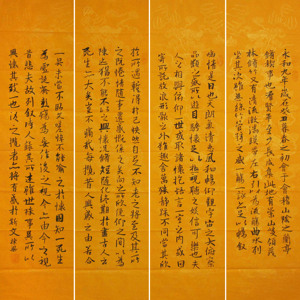 永和九年歲在癸丑暮春之初會于會稽山陰之蘭亭
脩稧事也羣賢畢至少長咸集此地有崇山峻領茂
林脩竹又有清流激湍暎帶左右引以為流觴曲水列
坐其次雖無絲竹管弦之盛一觴一詠亦足以暢叙
幽情是日也天朗氣清惠風和暢仰觀宇宙之大俯察
品類之盛所以遊目騁懷足以極視聽之娛信可樂也夫
人之相與俯仰一世或取諸懷抱悟言一室之內或因
寄所託放浪形骸之外雖趣舍萬殊靜躁不同當其欣
於所遇暫得於己快然自足不知老之將至及其所
之既倦情隨事遷感慨係之矣向之所欣俛仰之間以為
陳迹猶不能不以之興懷況脩短隨化終期於盡古人云
死生亦大矣豈不痛哉每攬昔人興感之由若合
一契未嘗不臨文嗟悼不能喻之於懷固知一死生
為虛誕齊彭殤為妄作後之視今亦由今之視
昔悲夫故列叙時人錄其所述雖世殊事異所以
興懷其致一也後之攬者亦將有感於斯文